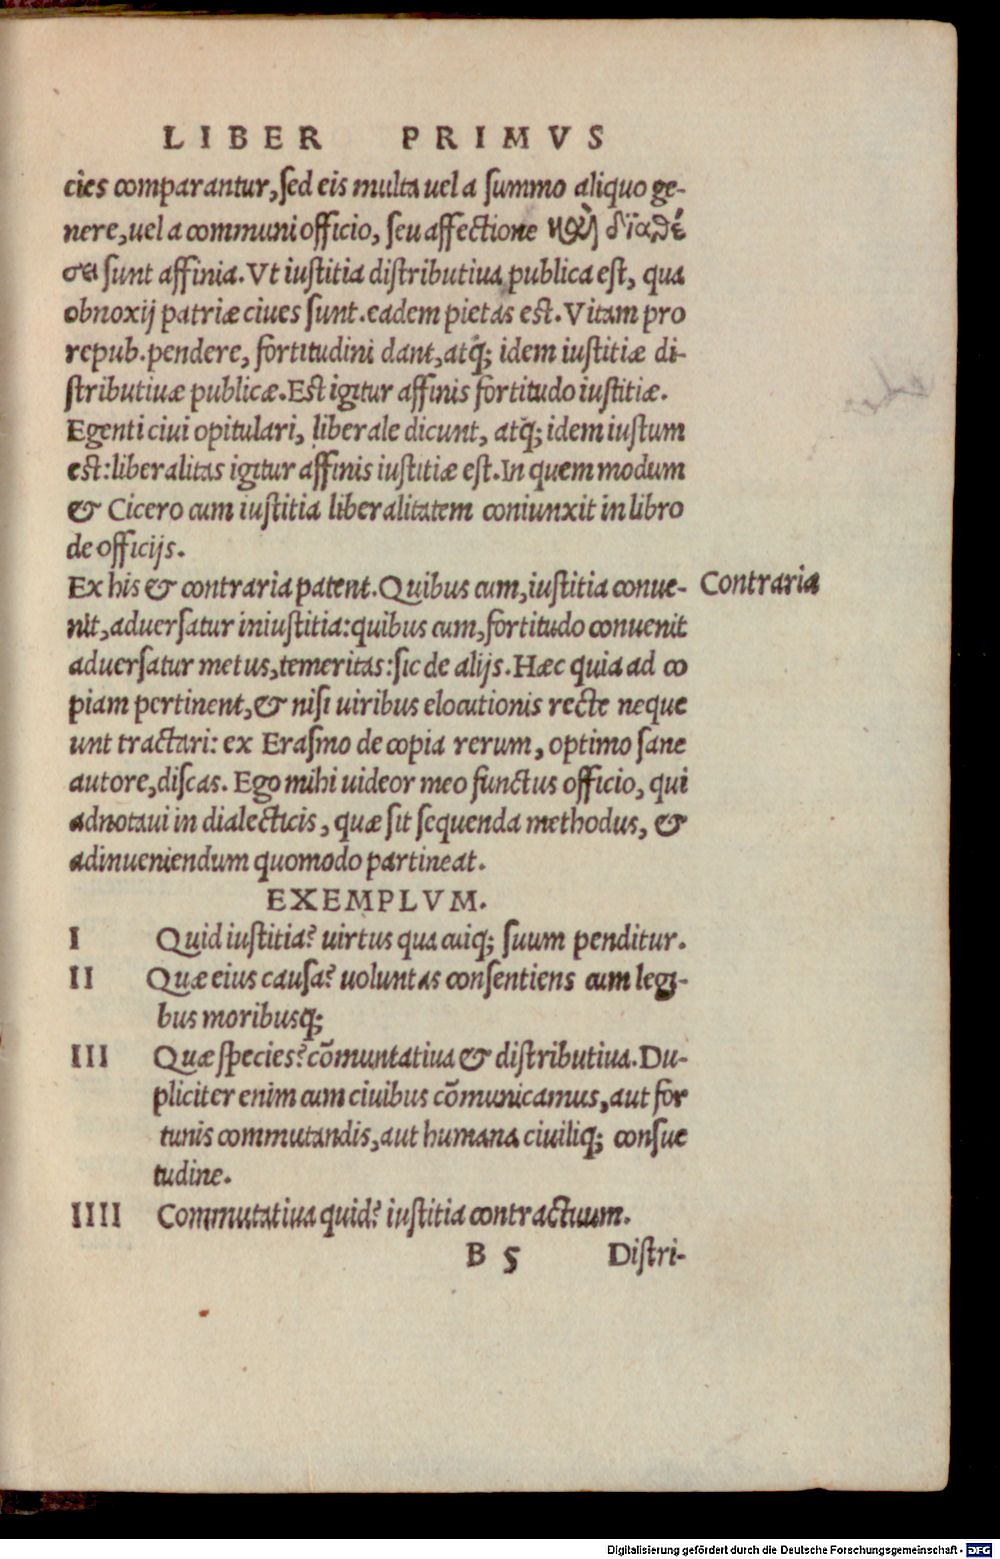 LIBER PRIMVS
cies comparantur, sed eis multa uel a summo aliquo ge-
nere, uel a communi officio, seu affectione καὶ διαθέ
σει sunt affinia. Vt iustitia distributiua publica est, qua
obnoxij patriæ ciues sunt. eadem pietas est. Vitam pro
repub. pendere, fortitudini dant, atq́; idem iustitiæ di-
stributiuæ publicæ. Est igitur affinis fortitudo iustitiæ.
Egenti ciui opitulari, liberale dicunt, atq́; idem iustum
est: liberalitas igitur affinis iustitiæ est. In quem modum
& Cicero cum iustitia liberalitatem coniunxit in libro
de officijs.
Ex his & contraria patent. Quibus cum, iustitia conue- Contraria
nit, aduersatur iniustitia: quibus cum, fortitudo conuenit
aduersatur metus, temeritas: sic de alijs. Hæc quia ad co
piam pertinent, & nisi uiribus elocutionis recte neque
unt tractari: ex Erasmo de copia rerum, optimo sane
autore, discas. Ego mihi uideor meo functus officio, qui
adnotaui in dialecticis, quæ sit sequenda methodus, &
adinueniendum quomodo partineat.
EXEMPLVM.
I Quid iustitia? uirtus qua cuiq; suum penditur.
II Quæ eius causa? uoluntas consentiens cum legi-
bus moribusq;
III Quæ species? cōmuntatiua & distributiua. Du-
pliciter enim cum ciuibus cōmunicamus, aut for
tunis commutandis, aut humana ciuiliq; consue
tudine.
IIII Commutatiua quid? iustitia contractuum.
B 5 Distri-
Digitalisierung gefördert durch die Deutsche Forschungsgemeinschaft - DFG